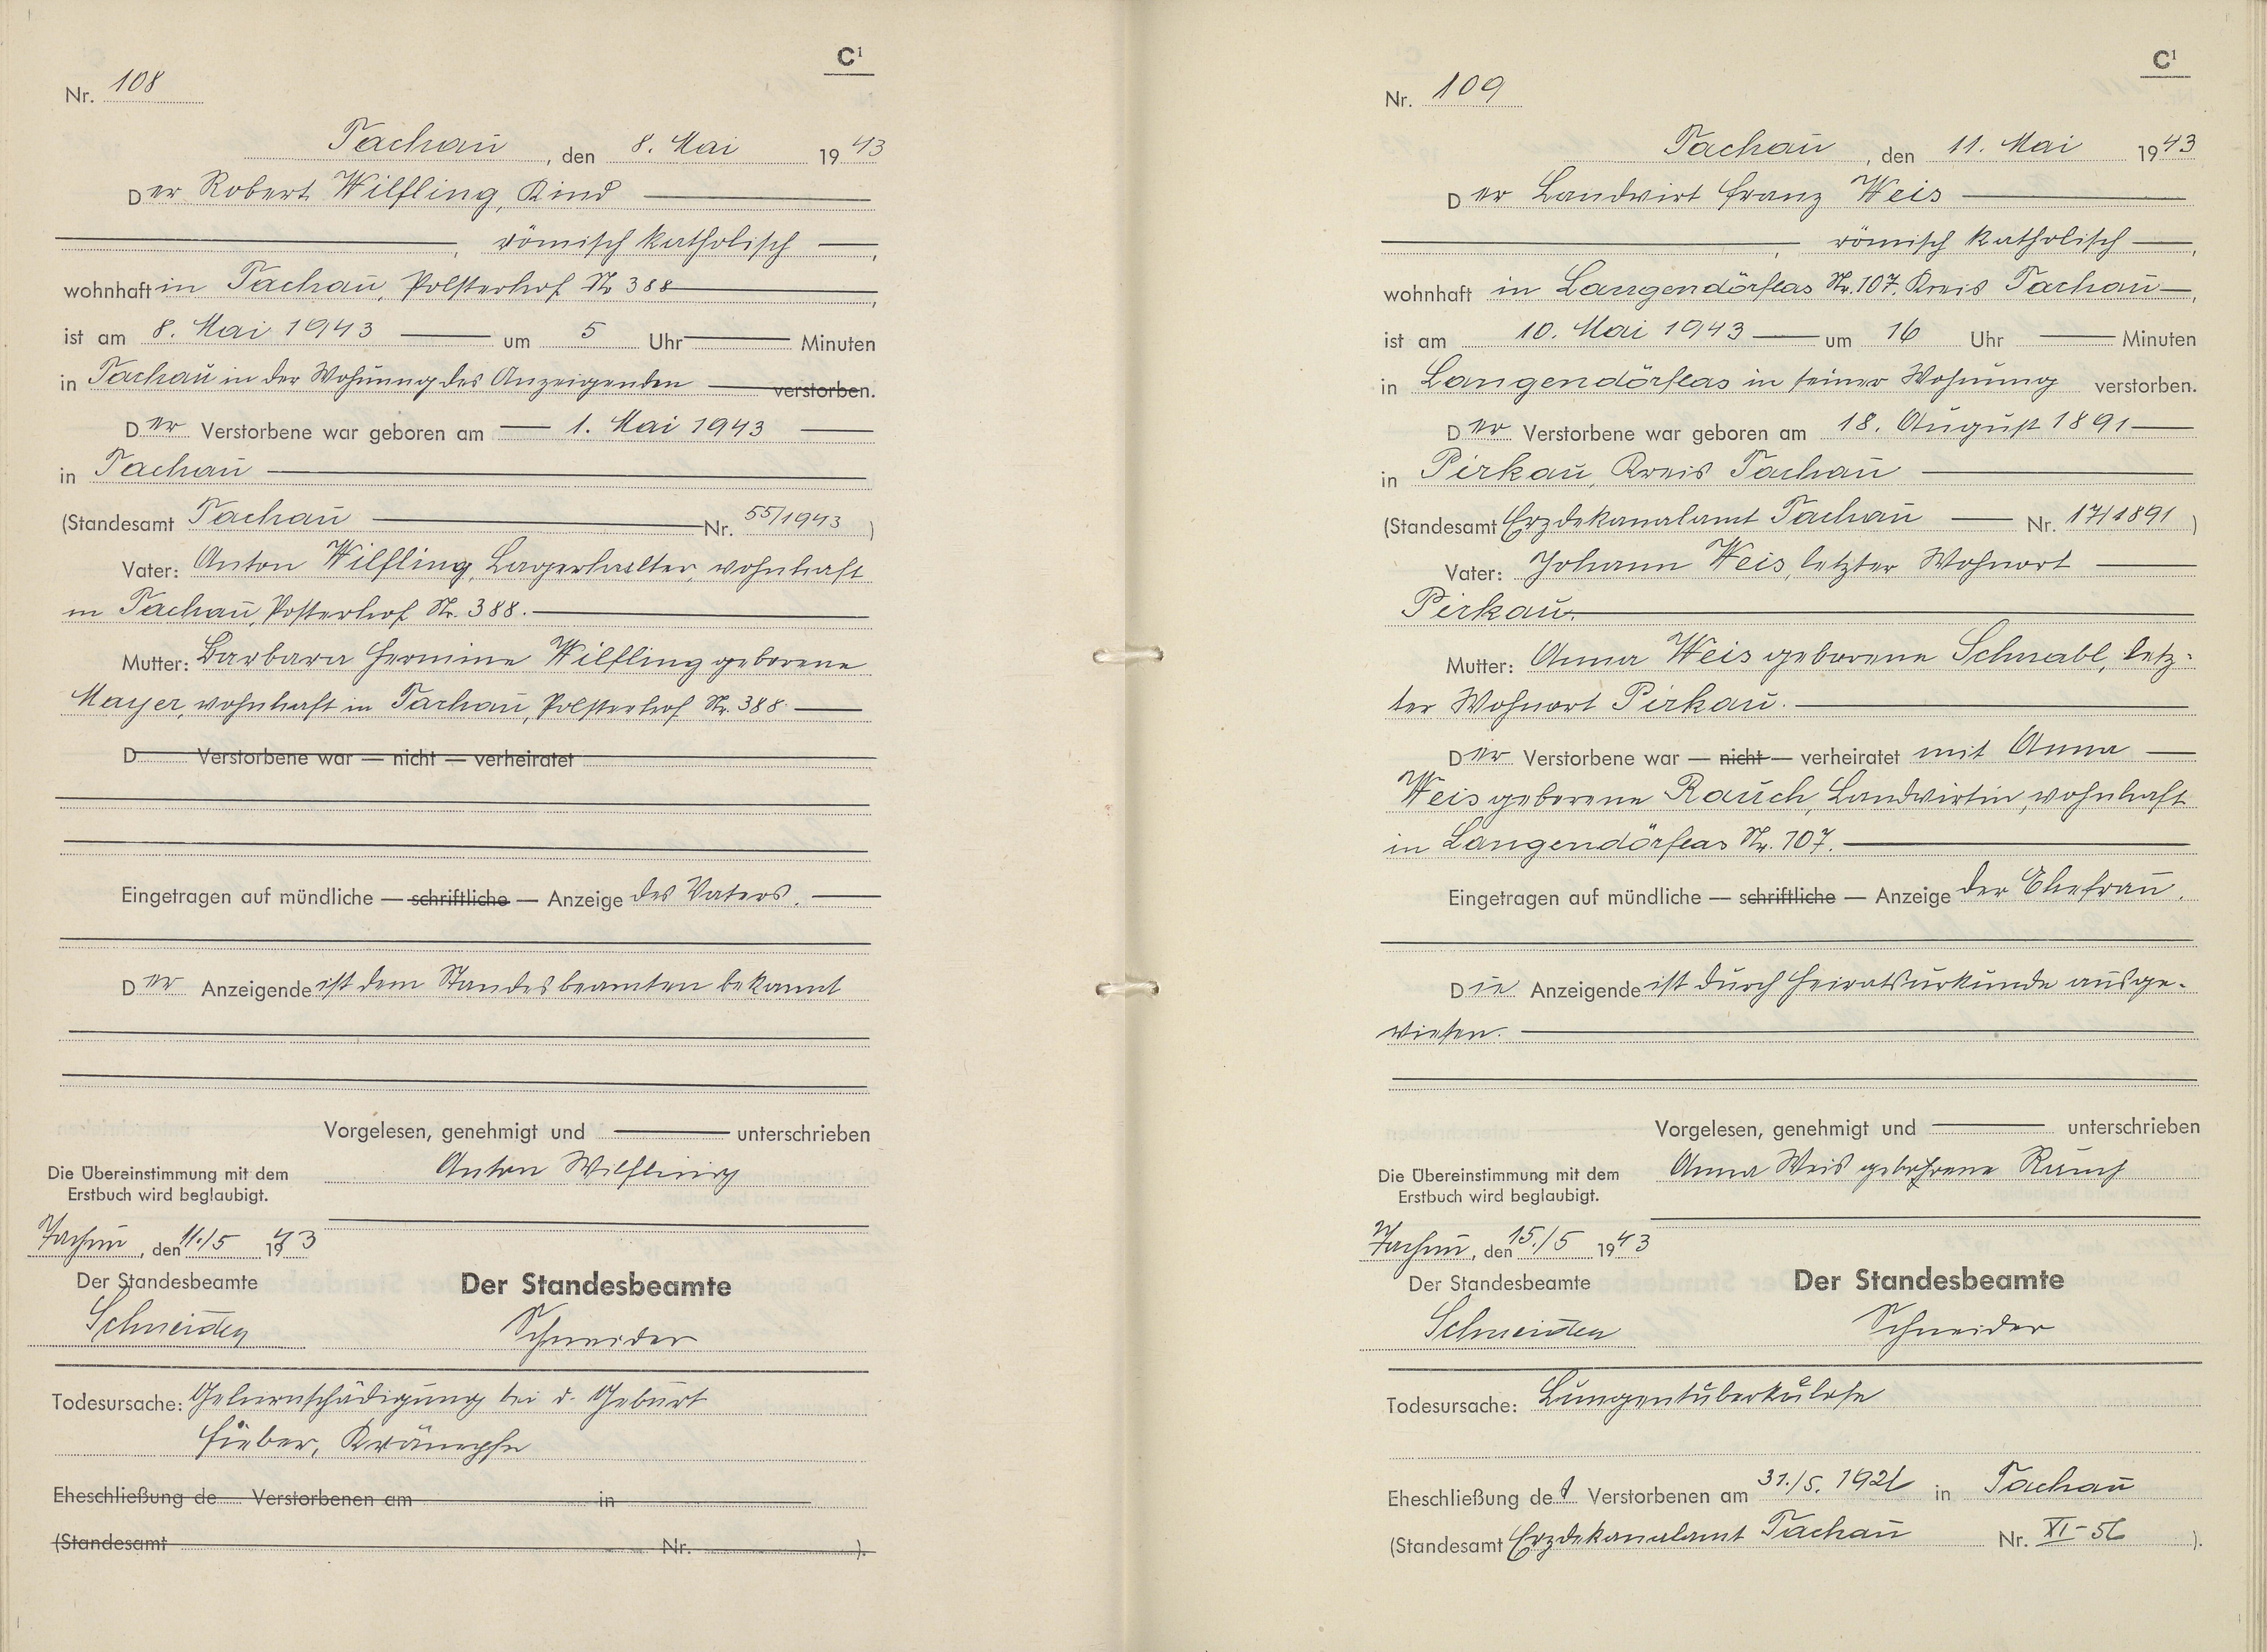 C¹
Nr. 108
Tachau, den 8. Mai 1943
Der Robert Wilfling, Kind
, römisch katholisch,
wohnhaft in Tachau, Polsterhof Nr 388,
ist am 8. Mai 1943 um 5 Uhr Minuten
in Tachau in der Wohnung des Anzeigenden verstorben.
Der Verstorbene war geboren am 1. Mai 1943
in Tachau
(Standesamt Tachau Nr. 55/1943)
Vater: Anton Wilfling, Lagerhalter, wohnhaft
in Tachau, Posterhof Nr. 388.
Mutter: Barbara Hermine Wilfling geborene
Mayer, wohnhaft in Tachau, Polsterhof Nr. 388.
D Verstorbene war — nicht — verheiratet
Eingetragen auf mündliche — schriftliche — Anzeige des Vaters.
Der Anzeigende ist dem Standesbeamten bekannt
Vorgelesen, genehmigt und unterschrieben
Anton Wilfling
Die Übereinstimmung mit dem
Erstbuch wird beglaubigt.
Tachau, den 11./5 1943
Der Standesbeamte
Der Standesbeamte
Schneider
Schneider
Todesursache: Gehirnschädigung bei d. Geburt
Fieber, Krämpfe
Eheschließung de Verstorbenen am in
(Standesamt Nr. ).
C¹
Nr. 109
Tachau, den 11. Mai 1943
Der Landwirt Franz Weis
, römisch katholisch,
wohnhaft in Langendörflas Nr. 107, Kreis Tachau,
ist am 10. Mai 1943 um 16 Uhr Minuten
in Langendörflas in seiner Wohnung verstorben.
Der Verstorbene war geboren am 18. August 1891
in Pirkau, Kreis Tachau
(Standesamt Erzdekanalamt Tachau Nr. 17/1891)
Vater: Johann Weis, letzter Wohnort
Pirkau.
Mutter: Anna Weis geborene Schnabl, letz-
ter Wohnort Pirkau.
Der Verstorbene war — nicht — verheiratet mit Anna
Weis geborene Rauch, Landwirtin, wohnhaft
in Langendörflas Nr. 107.
Eingetragen auf mündliche — schriftliche — Anzeige der Ehefrau.
Die Anzeigende ist durch Heiratsurkunde ausge-
wiesen.
Vorgelesen, genehmigt und unterschrieben
Anna Weis gebohrene Rauch
Die Übereinstimmung mit dem
Erstbuch wird beglaubigt.
Tachau, den 15./5 1943
Der Standesbeamte
Der Standesbeamte
Schneider
Schneider
Todesursache: Lungentuberkulose
Eheschließung des Verstorbenen am 31./5. 1921 in Tachau
(Standesamt Erzdekanalamt Tachau Nr. XI-56).